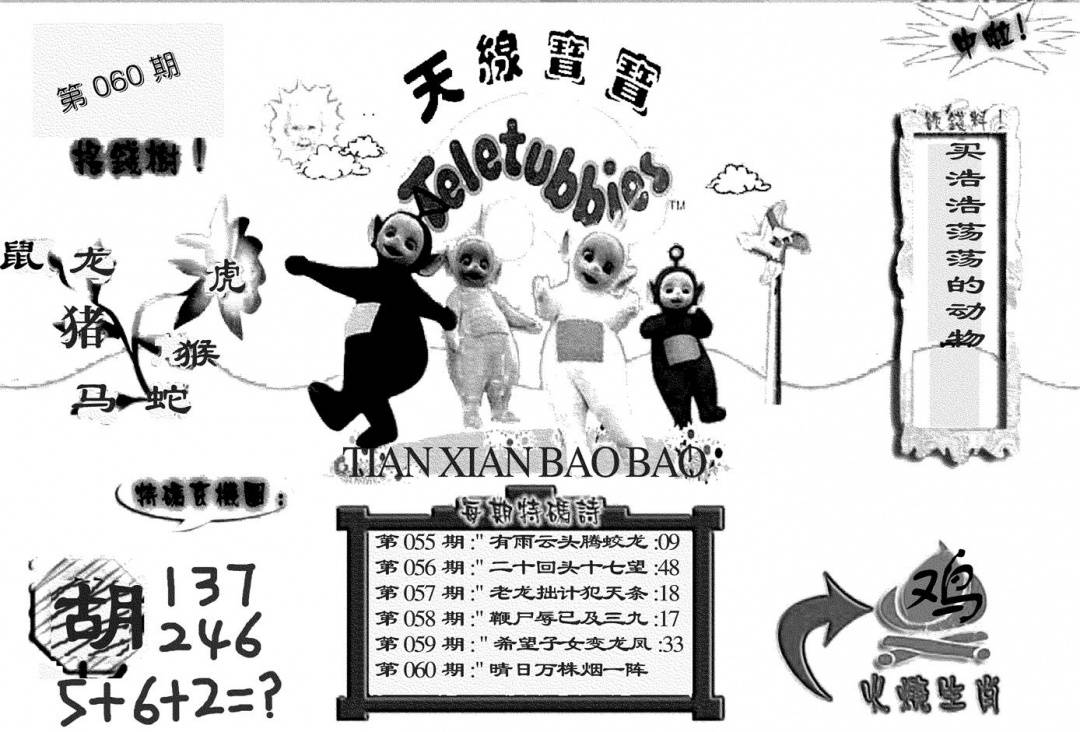 第 060 期
搖錢樹！
鼠 龙
虎
猪
猴
马 蛇
天線寶寶
Teletubbies
TM
TIAN XIAN BAO BAO
中啦！
錢料！
买浩浩荡荡的动物
特碼玄機圖：
胡
137
246
5+6+2=?
每期特碼詩
第 055 期 :" 有雨云头腾蛟龙 :09
第 056 期 :" 二十回头十七望 :48
第 057 期 :" 老龙拙计犯天条 :18
第 058 期 :" 鞭尸辱己及三九 :17
第 059 期 :" 希望子女变龙凤 :33
第 060 期 :" 晴日万株烟一阵
鸡
火燒生肖